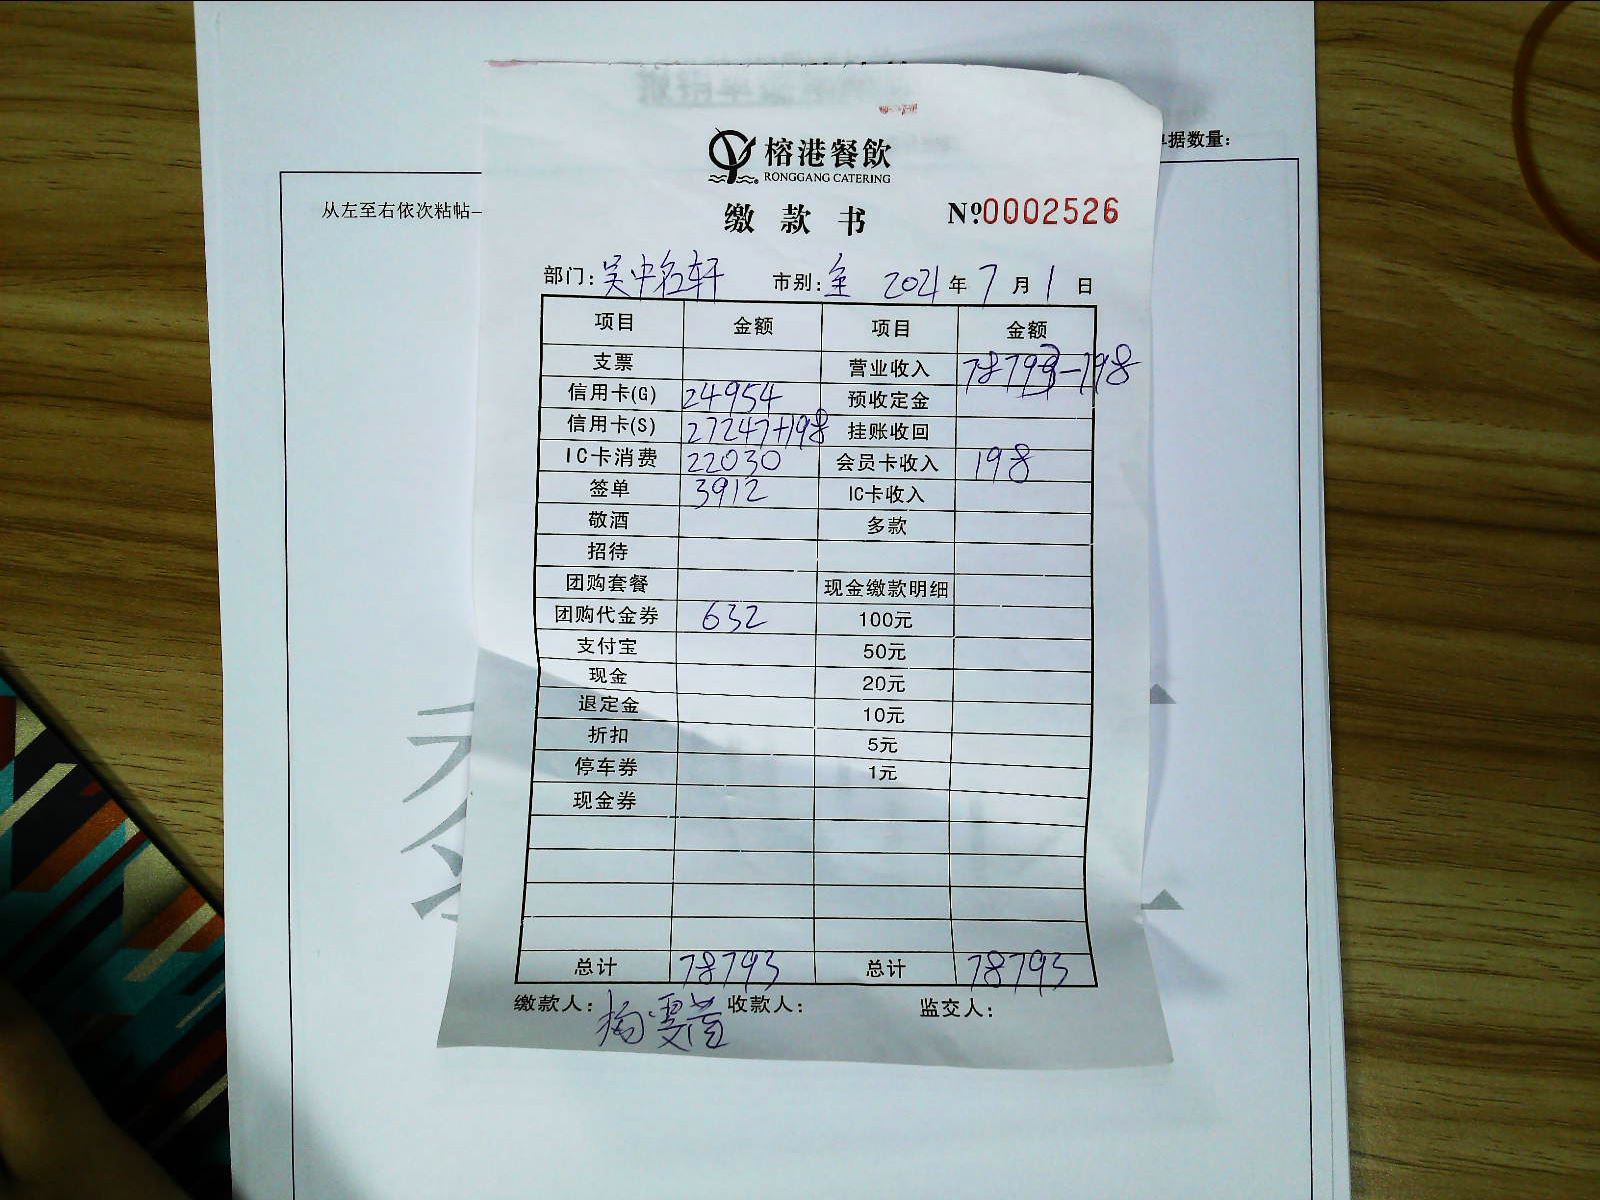 单据数量:
从左至右依次粘帖
榕港餐飲
RONGGANG CATERING
缴款书 №0002526
部门: 吴中名轩 市别: 全 2021年7月1日
项目 金额 项目 金额
支票 营业收入 78793-198
信用卡(G) 24954 预收定金
信用卡(S) 27247+198 挂账收回
IC卡消费 22030 会员卡收入 198
签单 3912 IC卡收入
敬酒 多款
招待
团购套餐 现金缴款明细
团购代金券 632 100元
支付宝 50元
现金 20元
退定金 10元
折扣 5元
停车券 1元
现金券
总计 78793 总计 78793
缴款人: 杨雯萱 收款人: 监交人: